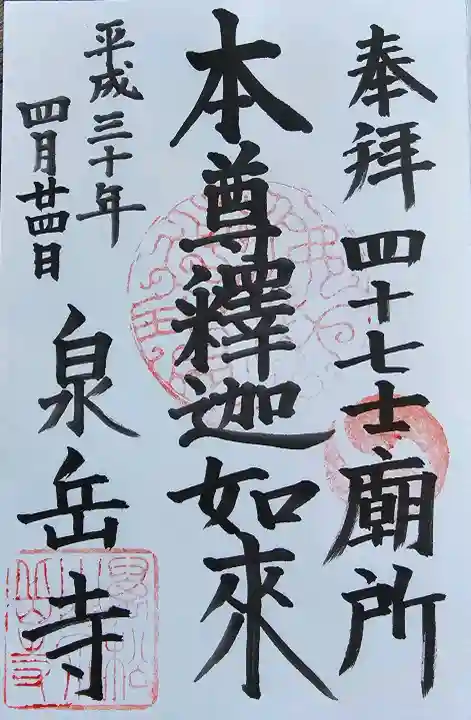 奉拜 四十七士廟所
本尊釋迦如來
平成三十年
四月廿四日
泉岳寺